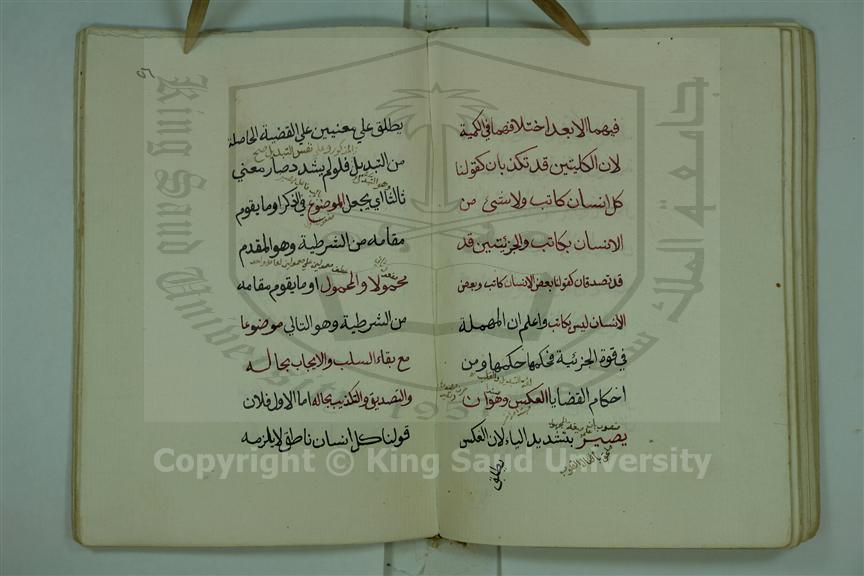 فيهما الا بعد اختلافهما في الكمية
لان الكليتين قد تكذبان كقولنا
كل انسان كاتب ولا شئ من
الانسان بكاتب والجزئيتين قد
قد تصدقان كقولنا بعض الانسان كاتب وبعض
الانسان ليس بكاتب واعلم ان المهملة
في قوة الجزئية فحكمها حكمها ومن
احكام القضايا العكس وهو ان
يصير بتشديد الياء لان العكس
يطلق
٥٦
يطلق علي معنيين علي القضية الحاصلة
المذكور وعلي نفس التبديل صح
من التبديل فلو لم يشدد صار معني
ثالثا اي يجعل الموضوع في الذكر او ما يقوم
مقامه من الشرطية وهو المقدم
محمولا والمحمول او ما يقوم مقامه
من الشرطية وهو التالي موضوعا
مع بقاء السلب والايجاب بحاله
والتصديق والتكذيب بحاله اما الاول فلان
قولنا كل انسان ناطق لا يلزمه
King Saud University
جامعة الملك سعود
1957
Copyright © King Saud University